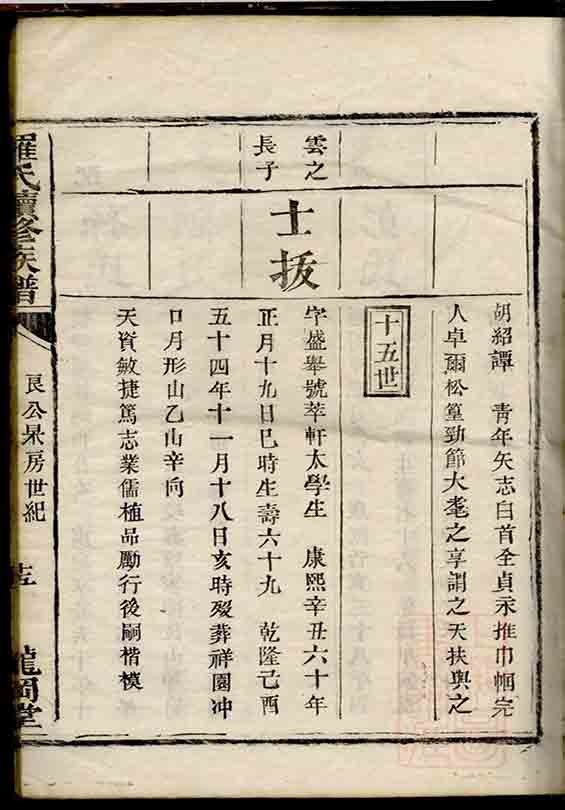 胡紹譚 青年矢志白首全貞永推巾幗完
人卓爾松篁勁節大耄之享謂之天扶與之
十五世
雲之
長子
士拔
字盛舉號萃軒太學生 康熙辛丑六十年
正月十九日巳時生壽六十九 乾隆己酉
五十四年十一月十八日亥時歿葬祥園冲
口月形山乙山辛向
天資敏捷篤志業儒植品勵行後嗣楷模
羅氏續修族譜
良公杲房世紀
龍岡堂